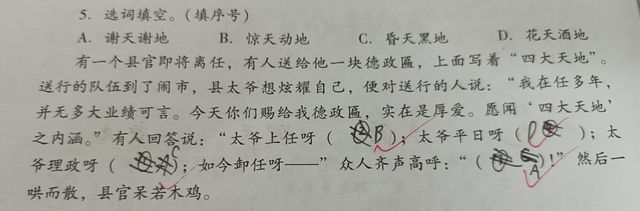 5. 选词填空。(填序号)
A. 谢天谢地 B. 惊天动地 C. 昏天黑地 D. 花天酒地
有一个县官即将离任,有人送给他一块德政匾,上面写着“四大天地”。
送行的队伍到了闹市,县太爷想炫耀自己,便对送行的人说:“我在任多年,
并无多大业绩可言。今天你们赐给我德政匾,实在是厚爱。愿闻‘四大天地’
之内涵。”有人回答说:“太爷上任呀( B );太爷平日呀( D );太
爷理政呀( C );如今卸任呀——”众人齐声高呼:“( A )!”然后一
哄而散,县官呆若木鸡。